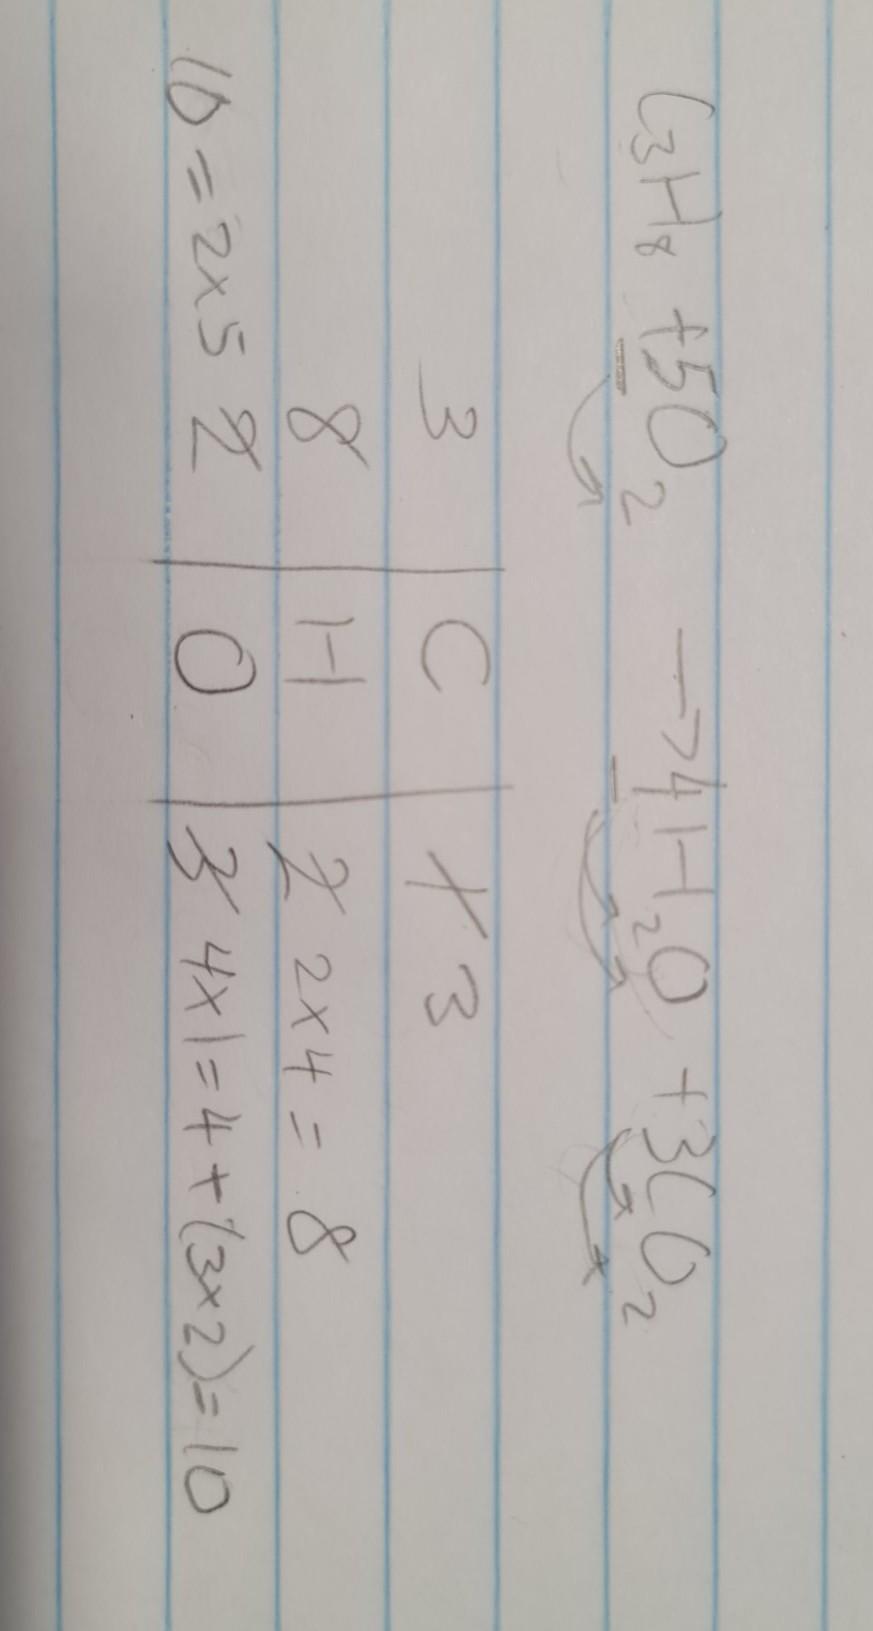 C₃H₈ + 5O₂ → 4H₂O + 3CO₂
3 | C | 1 3
8 | H | 2 2x4 = 8
10 = 2x5 2 | O | 3 4x1 = 4 + (3x2) = 10